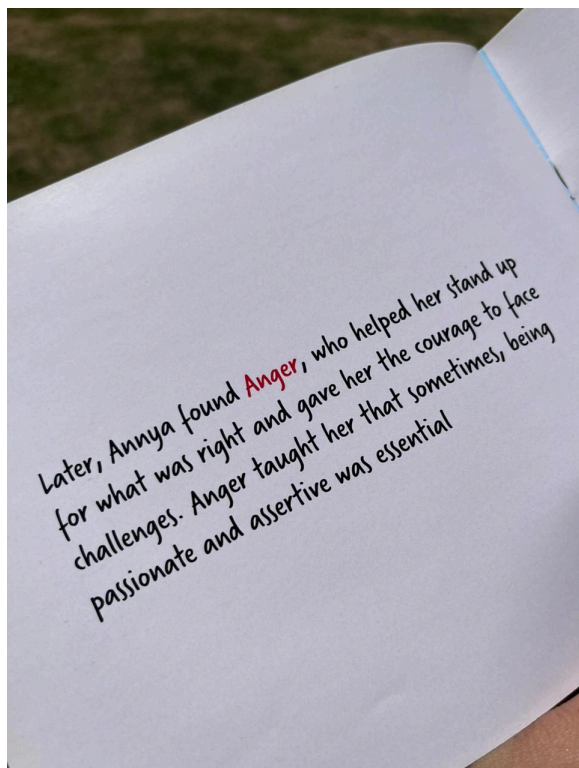 Later, Annya found Anger, who helped her stand up
for what was right and gave her the courage to face
challenges. Anger taught her that sometimes, being
passionate and assertive was essential